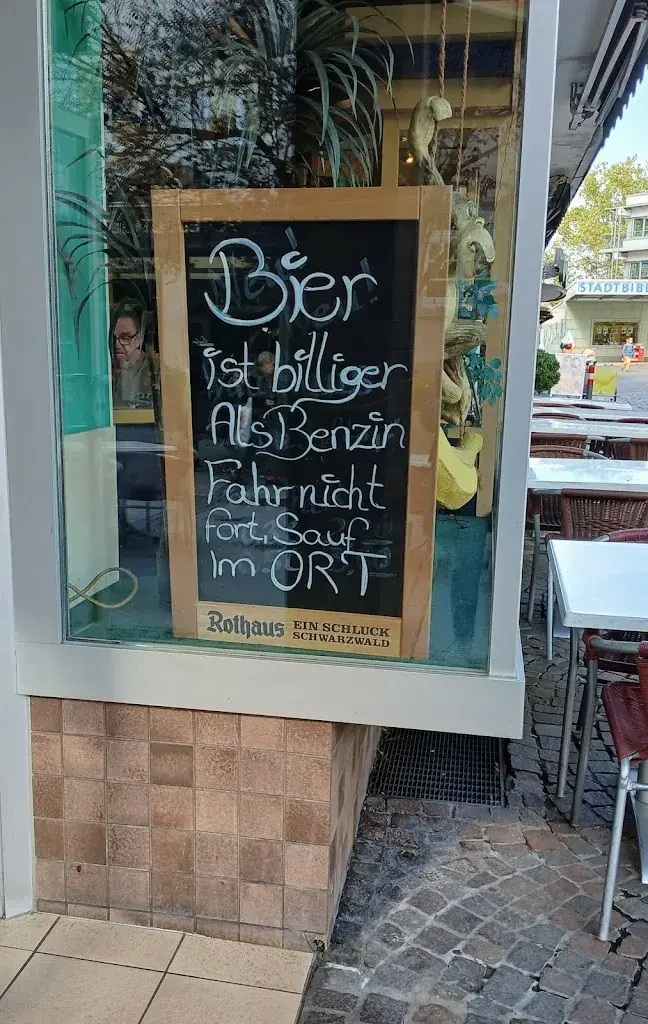 Bier
ist billiger
Als Benzin
Fahr nicht
fort, Sauf
Im ORT
Rothaus EIN SCHLUCK
SCHWARZWALD
STADTBIB